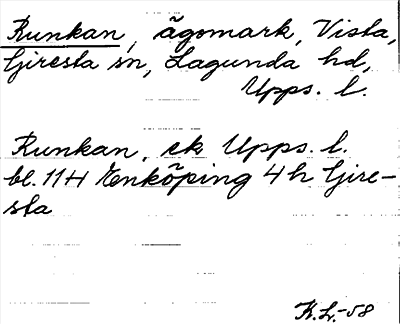 Runkan, ägomark, Vista,
Giresta sn, Lagunda hd,
Upps. l.
Runkan, ek Upps. l.
bl. 11 H Enköping 4 h Gire-
sta
K.L.-58